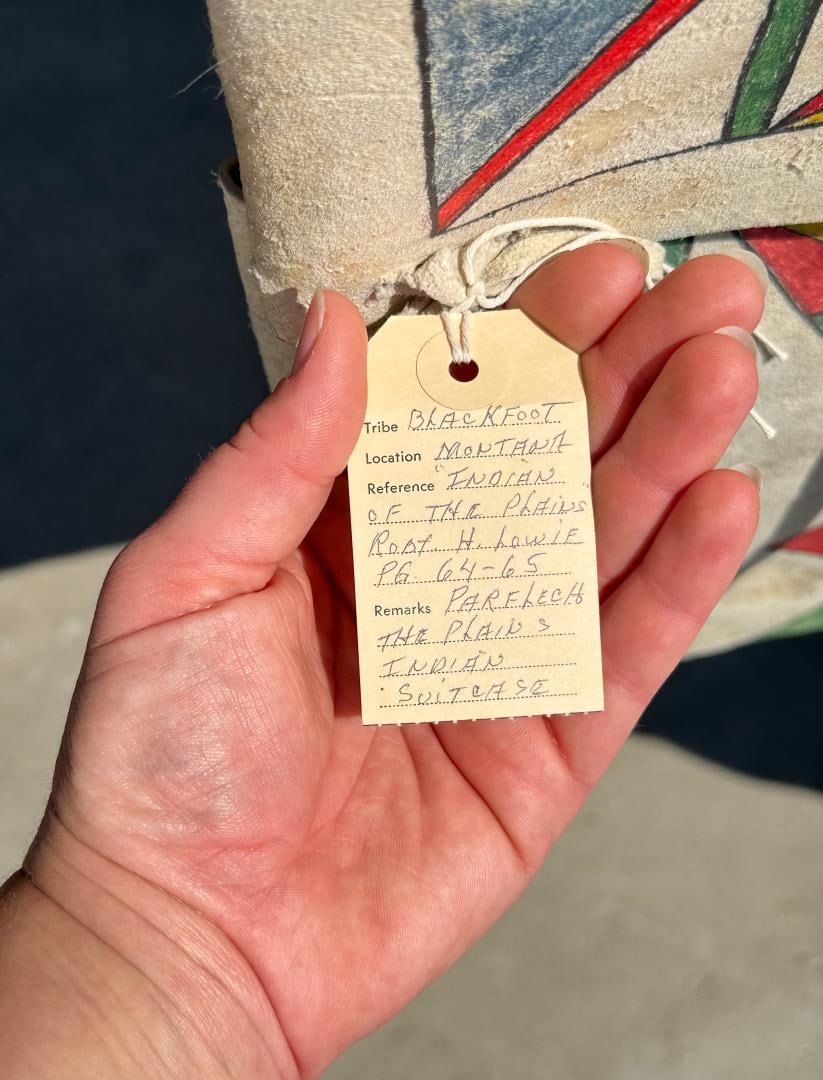 Tribe BLACKFOOT
Location MONTANA
Reference "INDIAN
OF THE PLAINS"
ROBT. H. LOWIE
PG. 64-65
Remarks PARFLECH
THE PLAINS
INDIAN
SUITCASE